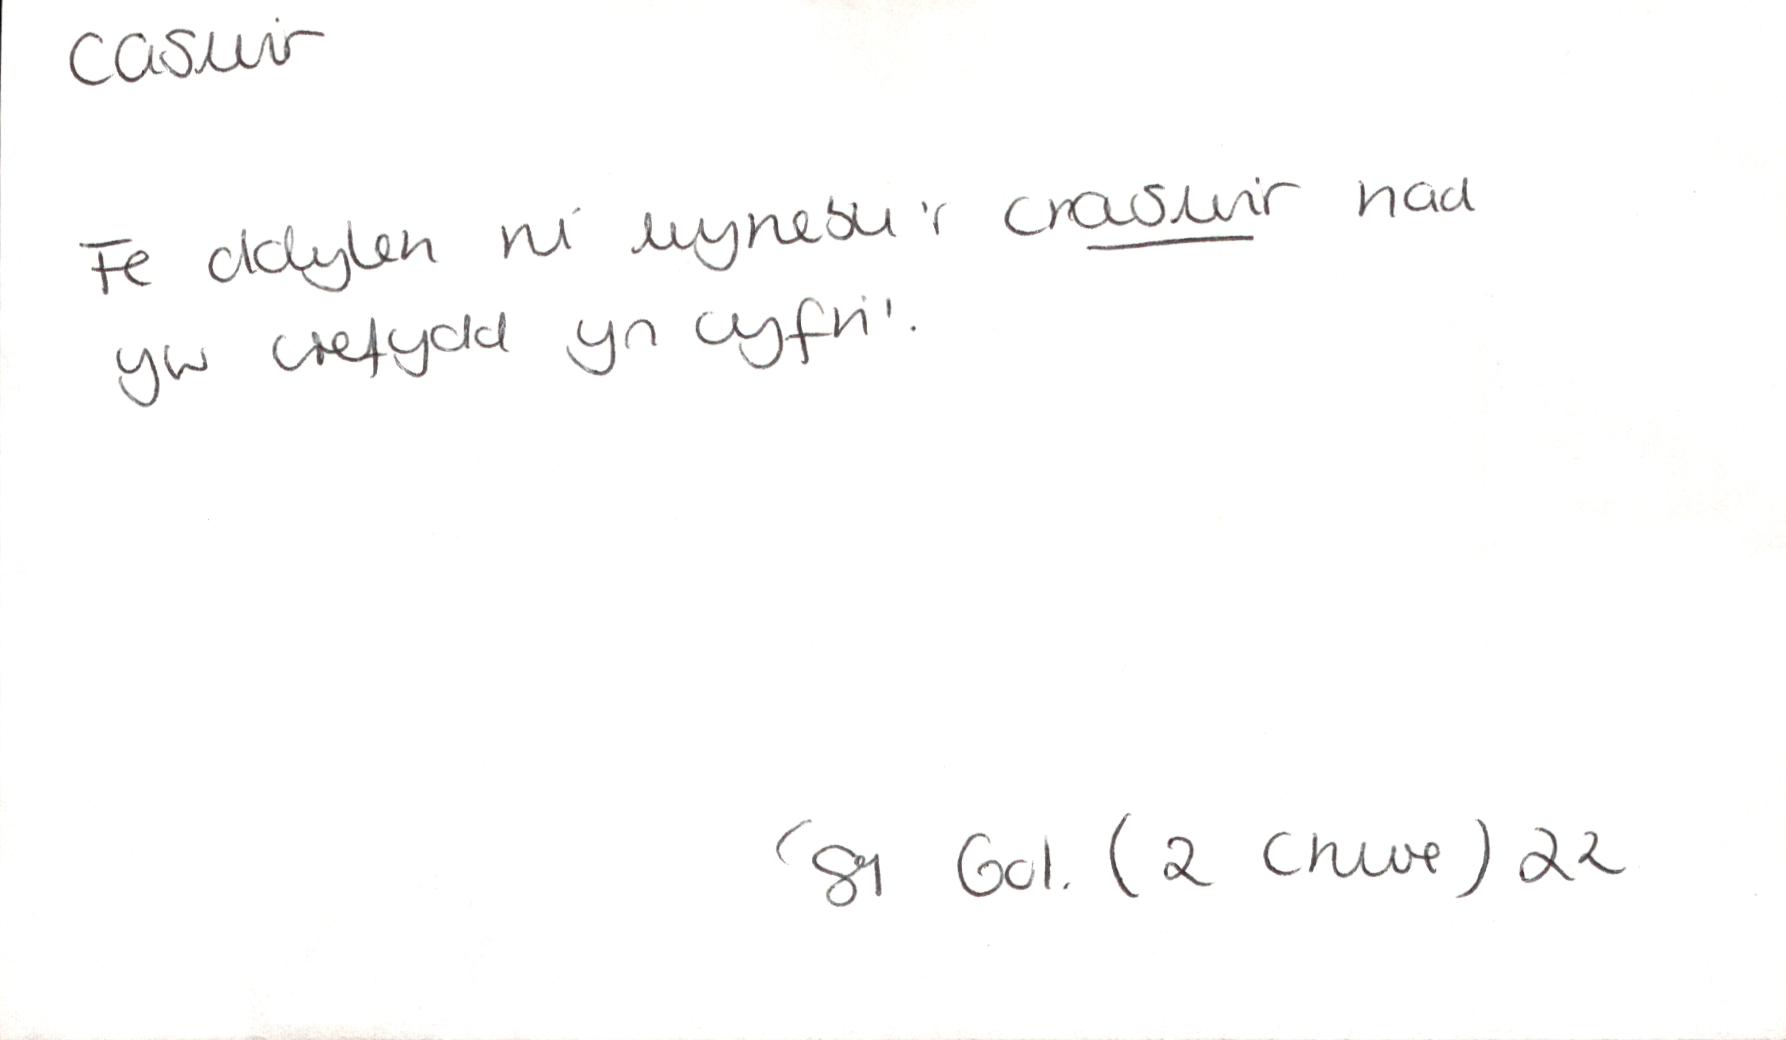 caswir
Fe ddylen ni wynebu'r craswir nad
yw crefydd yn cyfri'.
'81 Gol. (2 Chwe) 22